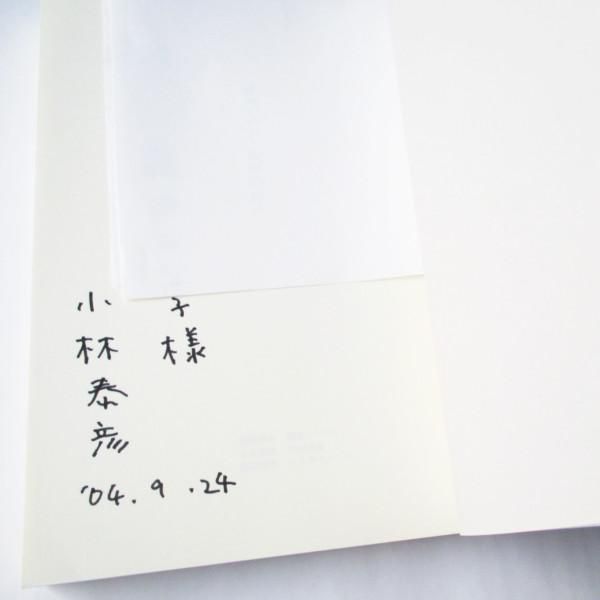 子様
小林泰彦
'04.9.24